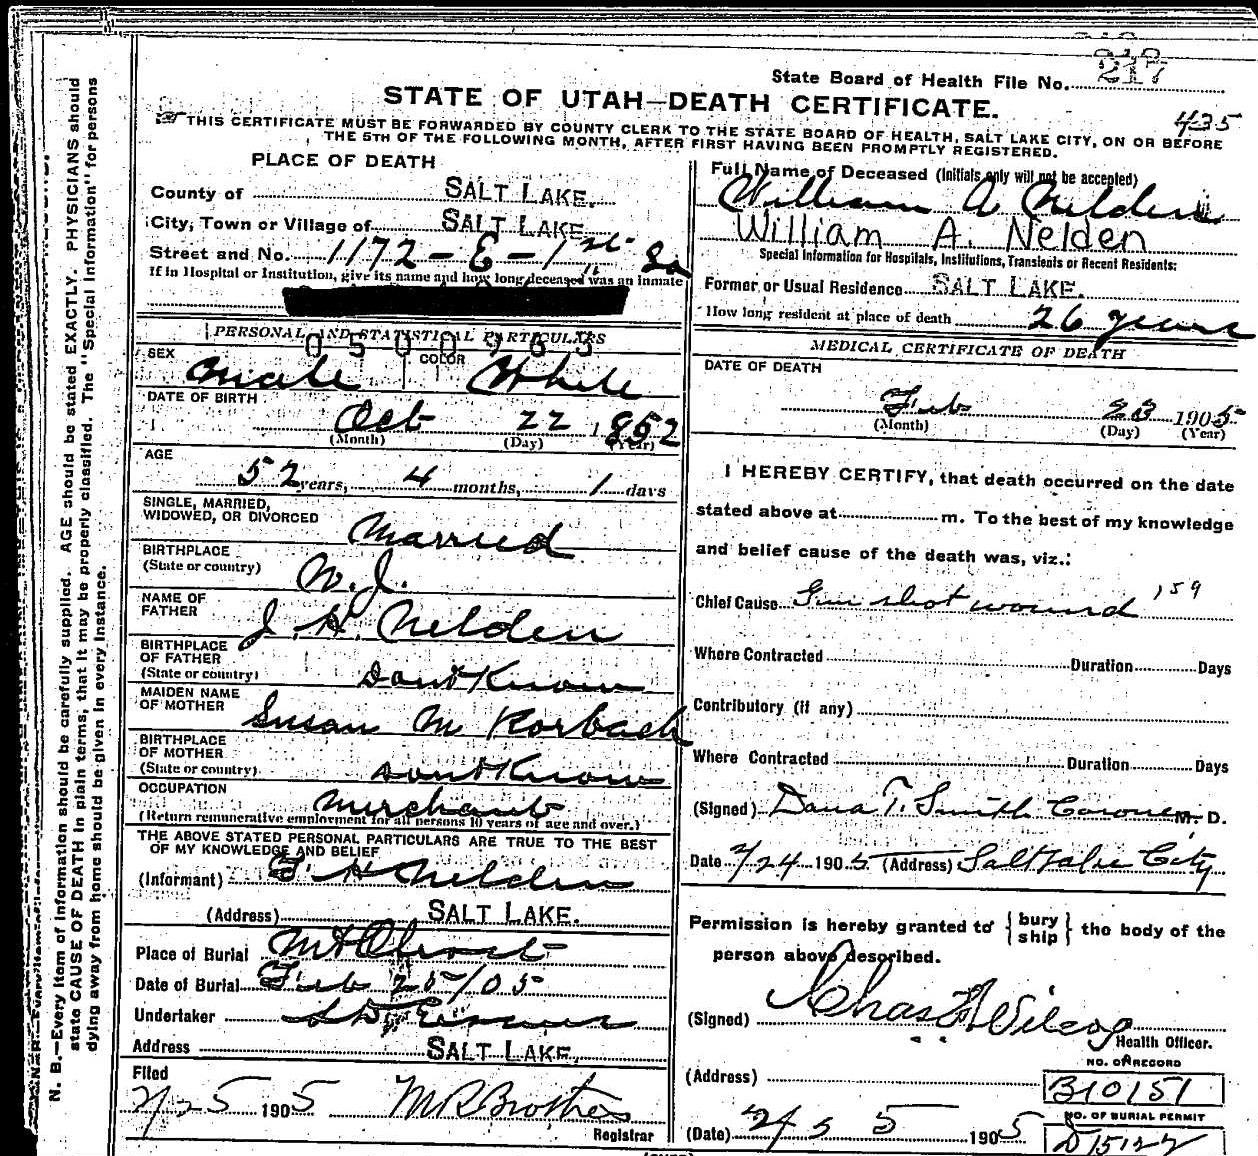 State Board of Health File No. 217
STATE OF UTAH—DEATH CERTIFICATE.
435
THIS CERTIFICATE MUST BE FORWARDED BY COUNTY CLERK TO THE STATE BOARD OF HEALTH, SALT LAKE CITY, ON OR BEFORE
THE 5TH OF THE FOLLOWING MONTH, AFTER FIRST HAVING BEEN PROMPTLY REGISTERED.
PLACE OF DEATH
County of SALT LAKE.
City, Town or Village of SALT LAKE
Street and No. 1172 - E - 1st So
If in Hospital or Institution, give its name and how long deceased was an inmate
PERSONAL AND STATISTICAL PARTICULARS
0500963
SEX Male COLOR White
DATE OF BIRTH
Oct 22 1852
(Month) (Day) (Year)
AGE
52 years, 4 months, 1 days
SINGLE, MARRIED,
WIDOWED, OR DIVORCED Married
BIRTHPLACE
(State or country) N. J.
NAME OF
FATHER J. H. Nelden
BIRTHPLACE
OF FATHER
(State or country) dont Know
MAIDEN NAME
OF MOTHER Susan M Korbach
BIRTHPLACE
OF MOTHER
(State or country) dont Know
OCCUPATION Merchant
(Return remunerative employment for all persons 10 years of age and over.)
THE ABOVE STATED PERSONAL PARTICULARS ARE TRUE TO THE BEST
OF MY KNOWLEDGE AND BELIEF
(Informant) F. H Nelden
(Address) SALT LAKE.
Place of Burial Mt Olivet
Date of Burial Feb 25/05
Undertaker
Address SALT LAKE.
Filed
2/25 1905 M R Brothers
Registrar
Full Name of Deceased (Initials only will not be accepted)
William A Nelden
William A. Nelden
Special Information for Hospitals, Institutions, Transients or Recent Residents:
Former or Usual Residence SALT LAKE.
How long resident at place of death 26 years
MEDICAL CERTIFICATE OF DEATH
DATE OF DEATH
Feb 23 1905
(Month) (Day) (Year)
I HEREBY CERTIFY, that death occurred on the date
stated above at m. To the best of my knowledge
and belief cause of the death was, viz.:
Chief Cause Gun shot wound 159
Where Contracted Duration Days
Contributory (if any)
Where Contracted Duration Days
(Signed) Dana T. Smith Coroner M. D.
Date 2/24 1905 (Address) Salt Lake City
Permission is hereby granted to { bury
ship } the body of the
person above described.
(Signed) Chas Wilcox
Health Officer.
(Address)
NO. OF RECORD
B10151
NO. OF BURIAL PERMIT
D15122
(Date) 2/ 5 1905
N. B.—Every item of information should be carefully supplied. AGE should be stated EXACTLY. PHYSICIANS should
state CAUSE OF DEATH in plain terms, that it may be properly classified. The "Special Information" for persons
dying away from home should be given in every instance.